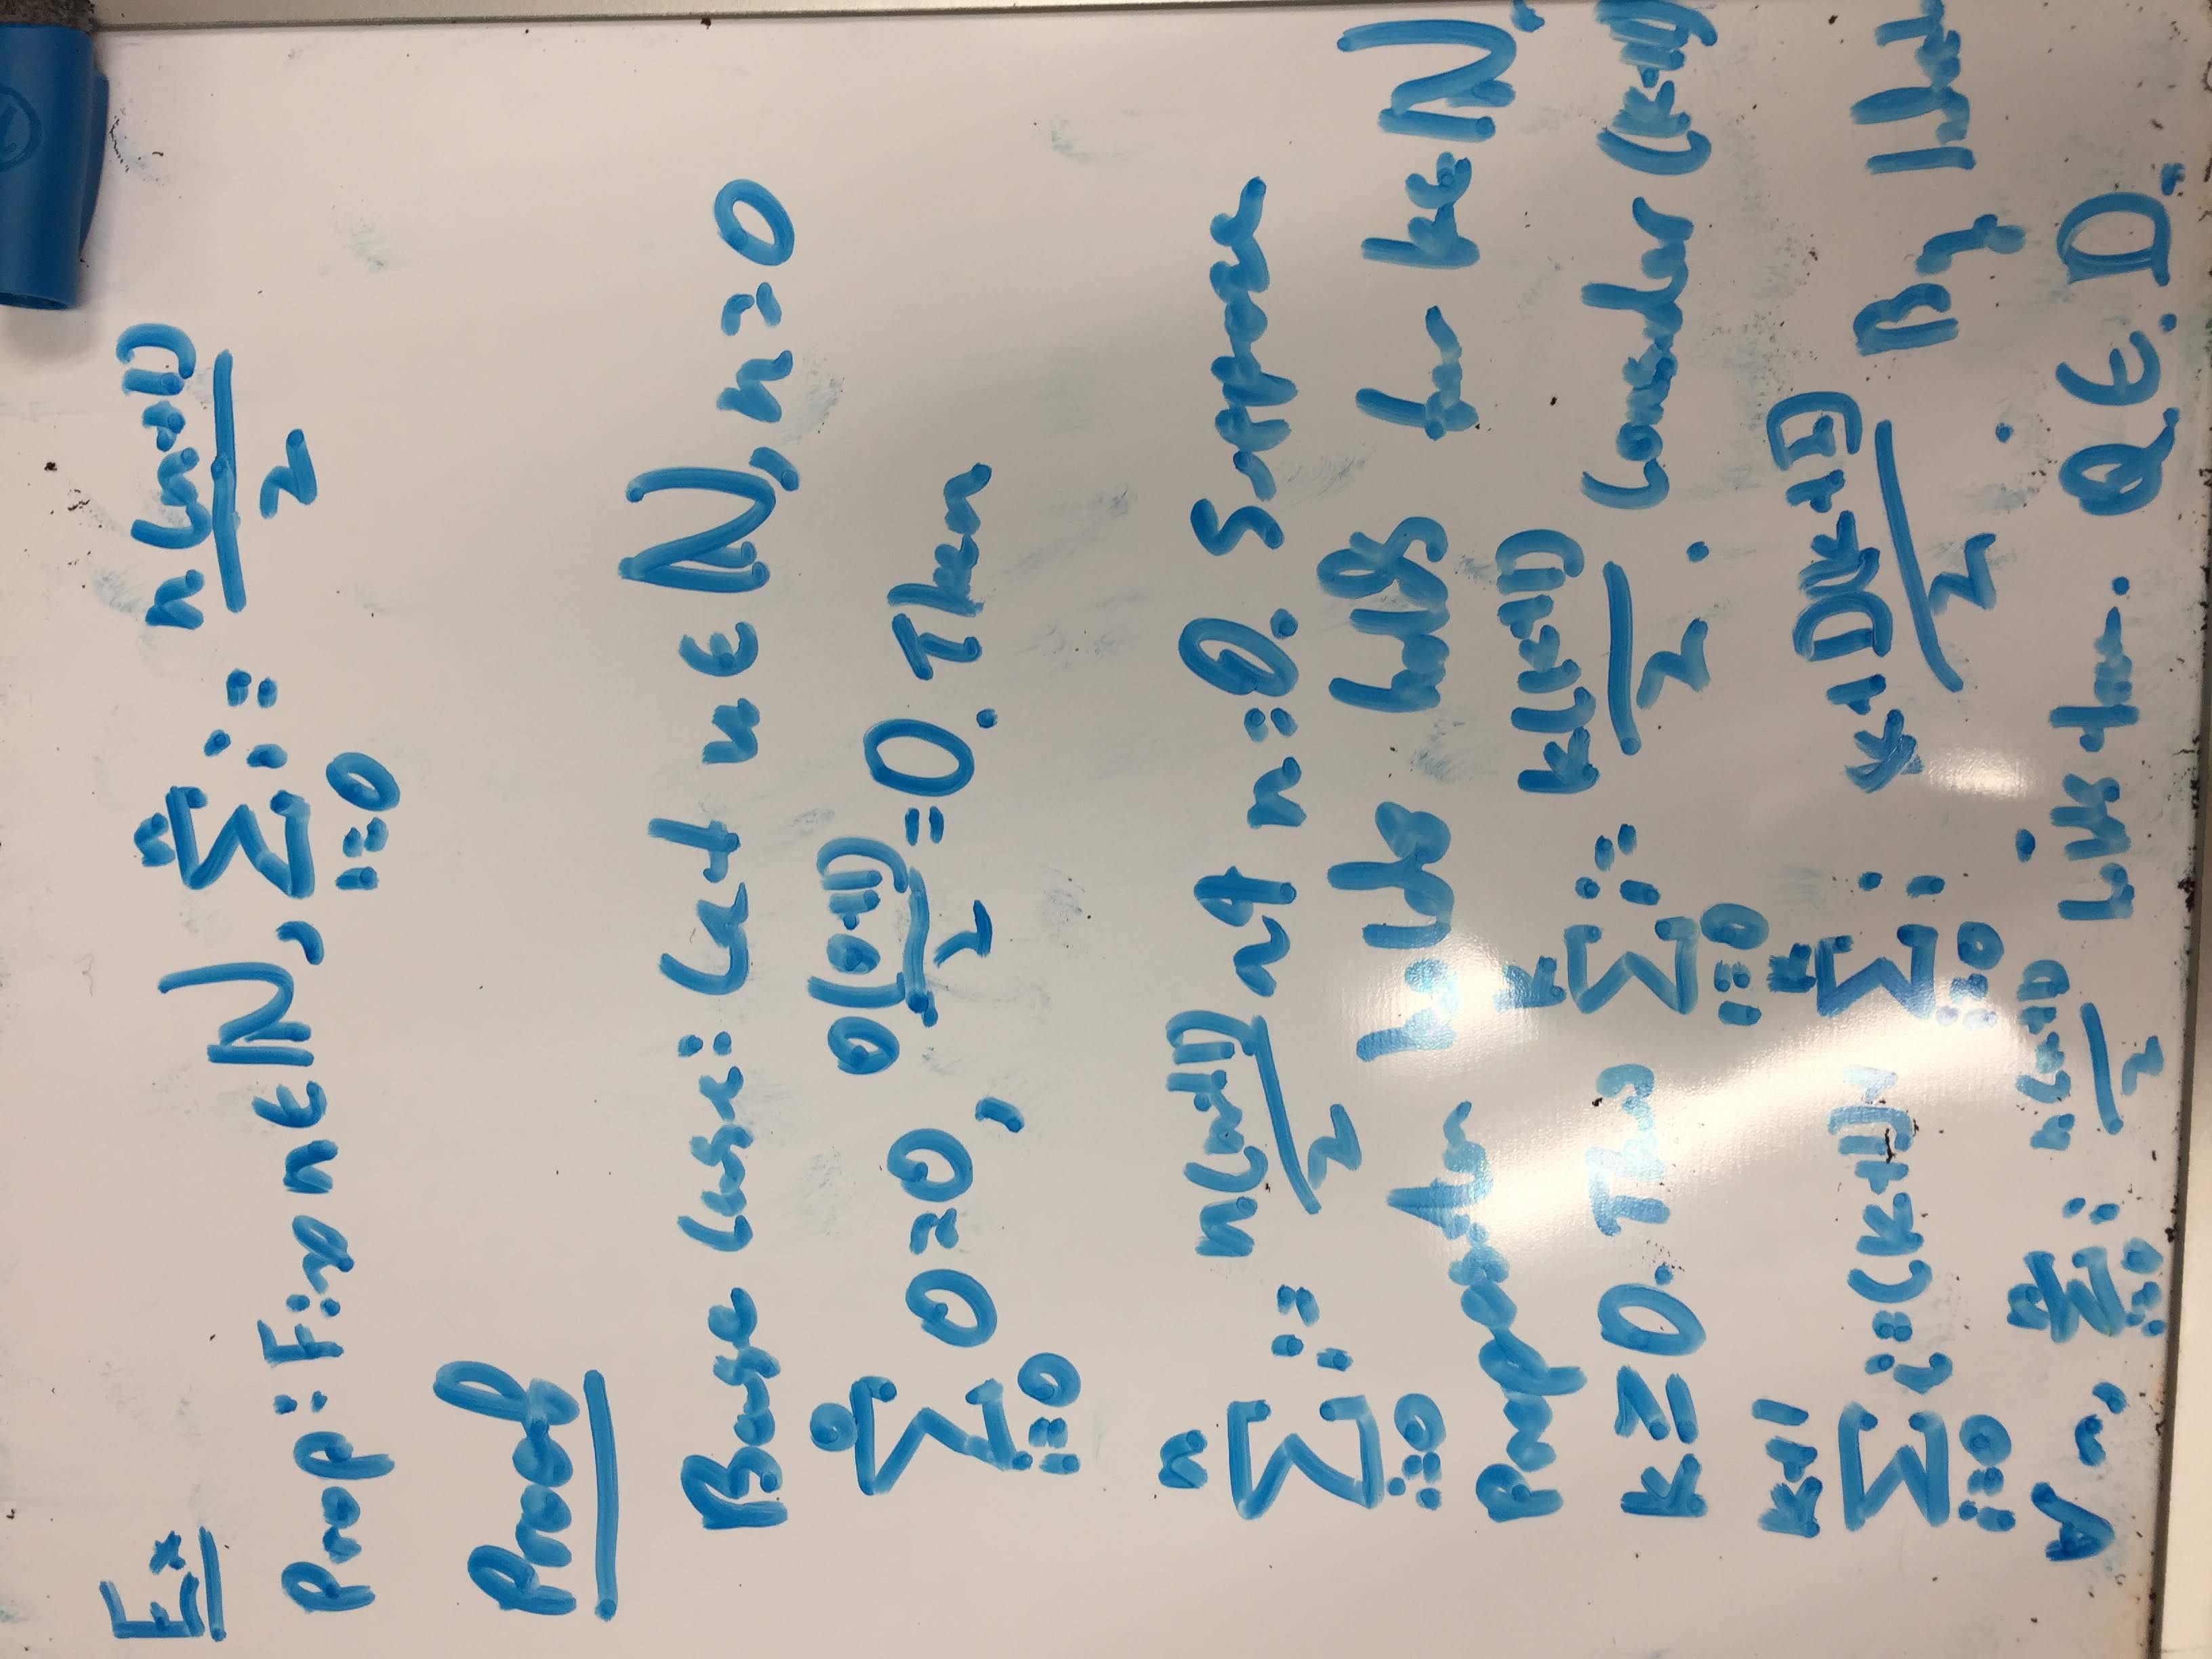 Ex
Prop: Fix n ∈ ℕ, ∑_{i=0}^{n} i = n(n+1)/2
Proof
Base Case: Let n ∈ ℕ, n = 0
∑_{i=0}^{0} 0 = 0, 0(0+1)/2 = 0. Then
∑_{i=0}^{n} i = n(n+1)/2 at n = 0. Suppose
Proposition holds holds for k ∈ ℕ,
k ≥ 0. Thus ∑_{i=0}^{k} i = k(k+1)/2. Consider (k+1)
∑_{i=0}^{k+1} i = (k+1) + ∑_{i=0}^{k} i (k+1)(k+2)/2. By
∀ n, ∑_{i=0}^{n} i n(n+1)/2 holds true. Q.E.D.